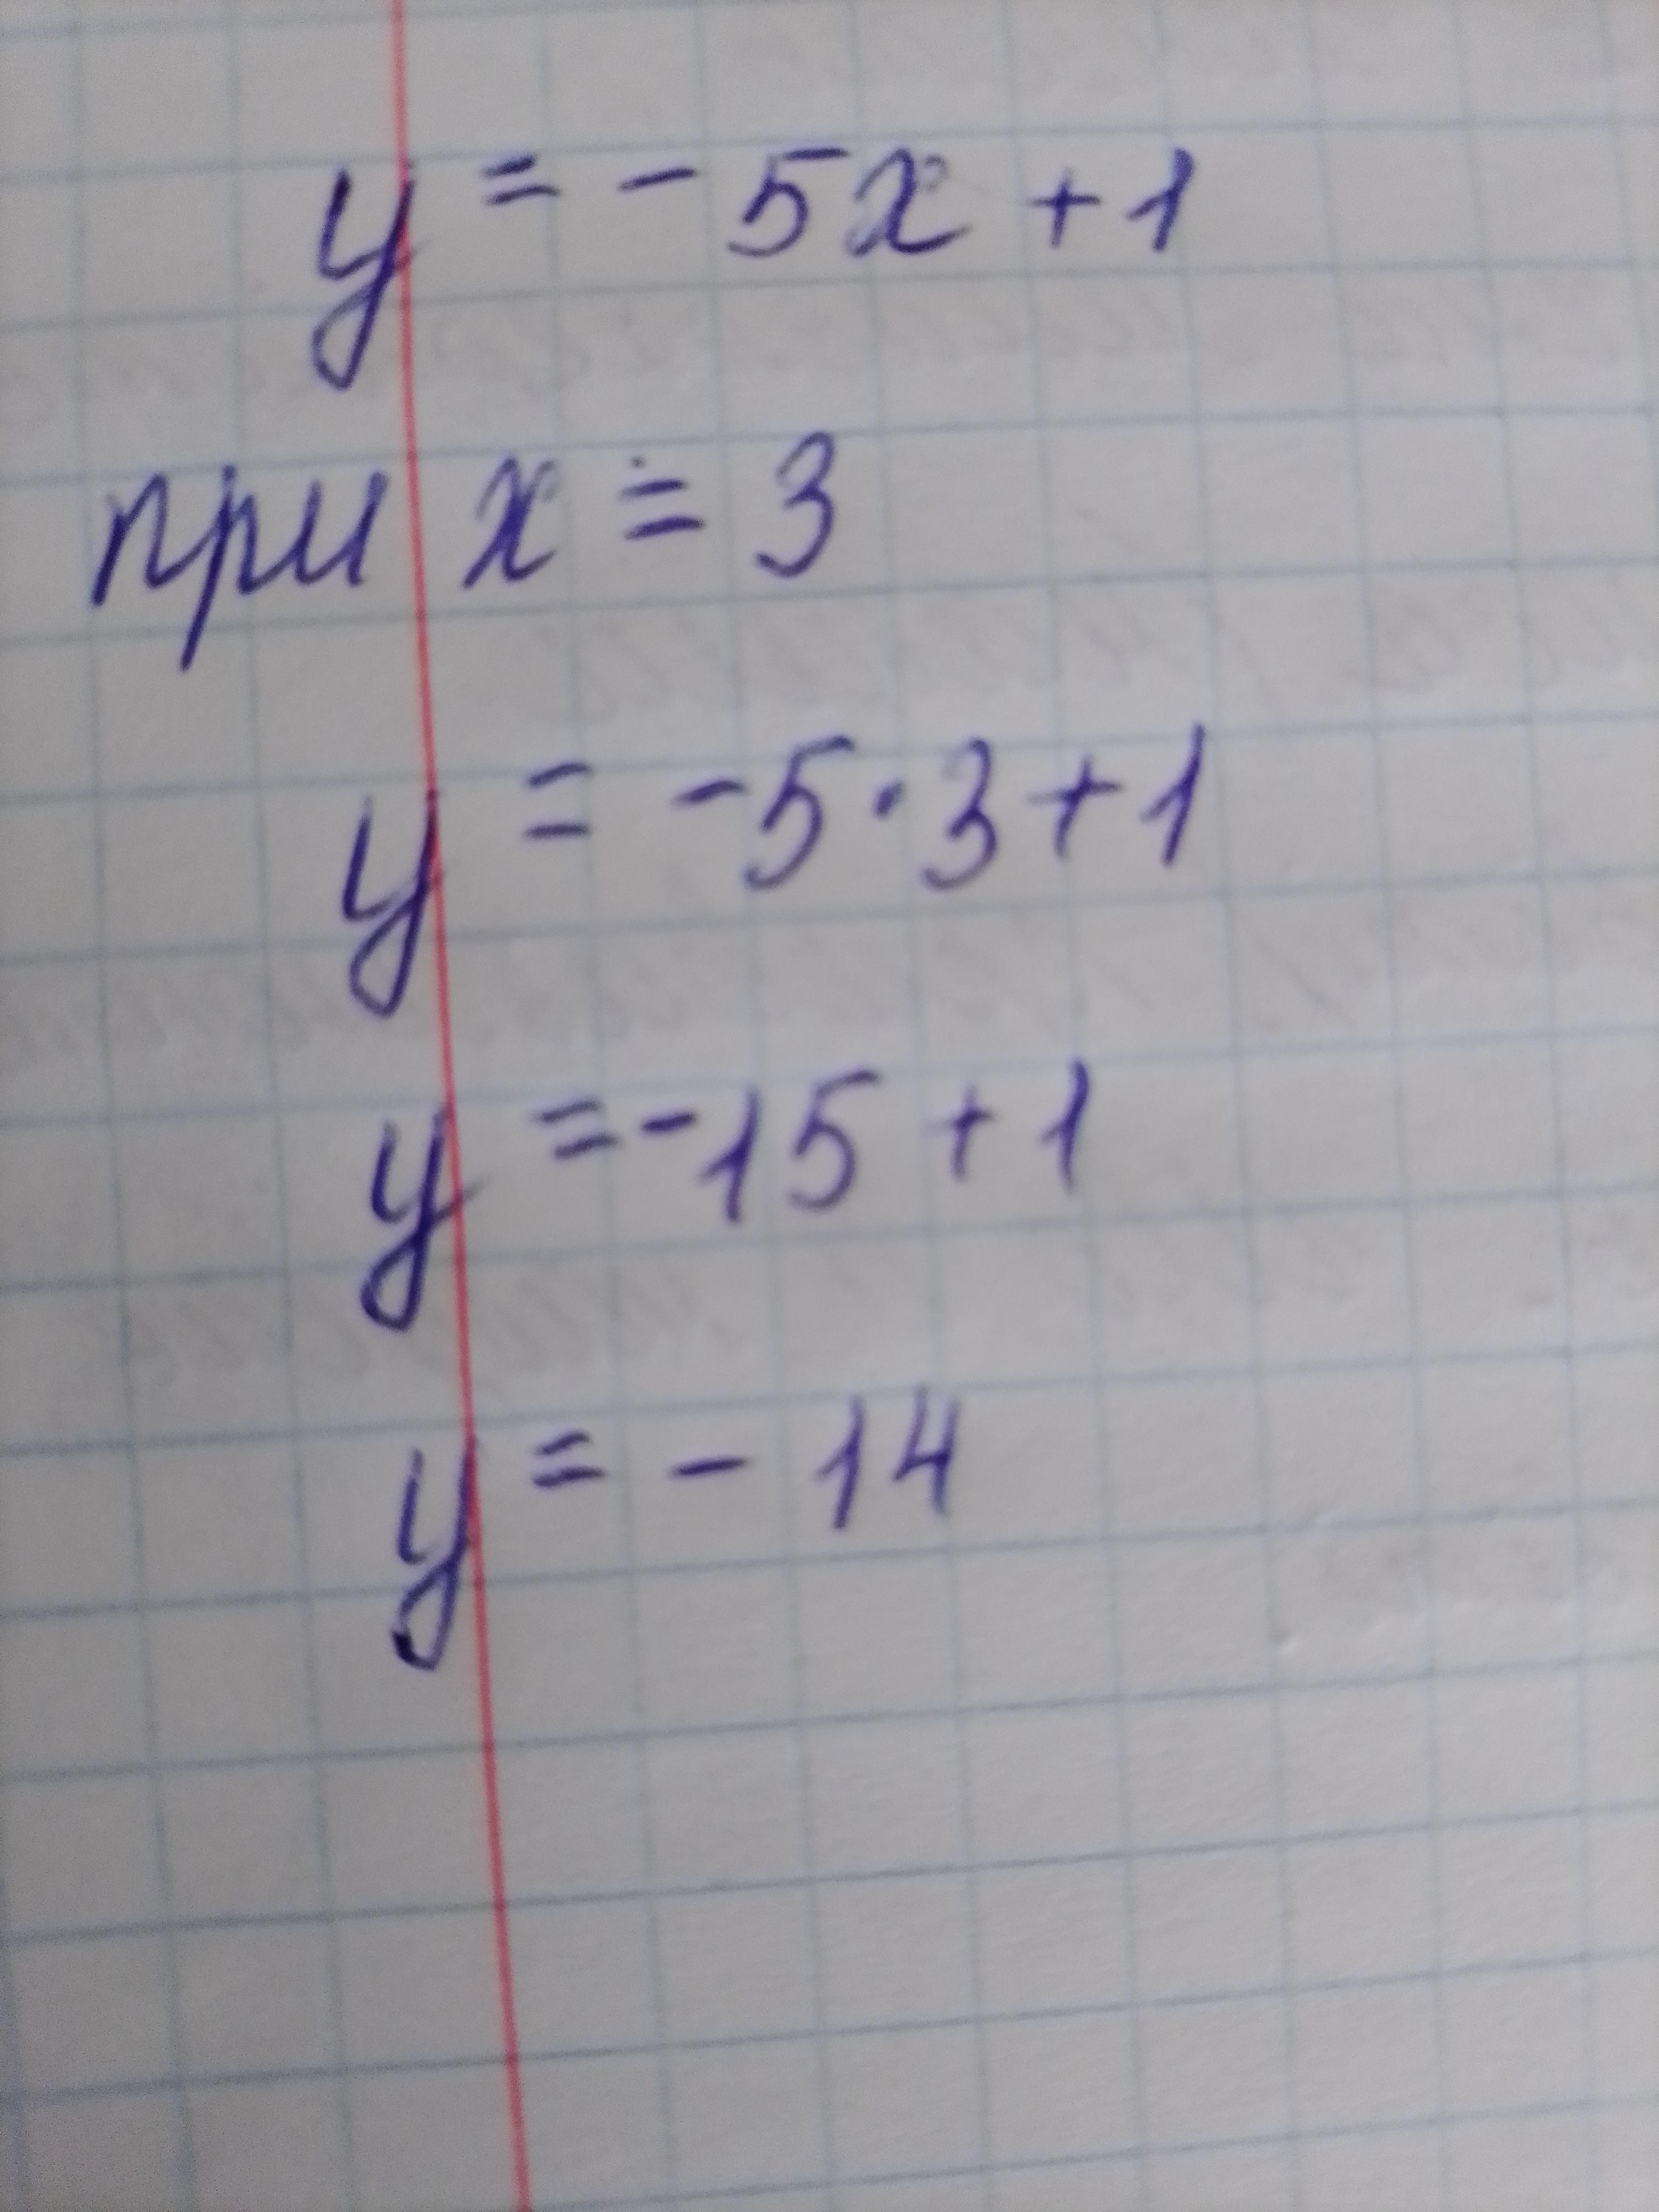 y = - 5x + 1
при x = 3
y = -5 · 3 + 1
y = -15 + 1
y = - 14